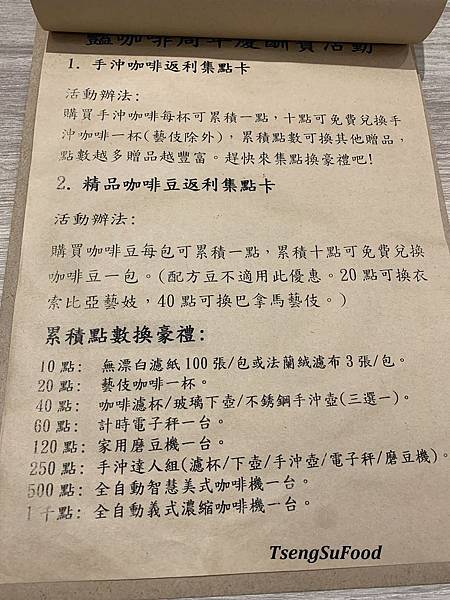 豔咖啡周年慶酬賓活動
1. 手沖咖啡返利集點卡
活動辦法:
購買手沖咖啡每杯可累積一點，十點可免費兌換手
沖咖啡一杯(藝伎除外)，累積點數可換其他贈品，
點數越多贈品越豐富。趕快來集點換豪禮吧!
2. 精品咖啡豆返利集點卡
活動辦法:
購買咖啡豆每包可累積一點，累積十點可免費兌換
咖啡豆一包。(配方豆不適用此優惠。20 點可換衣
索比亞藝妓，40 點可換巴拿馬藝伎。)
累積點數換豪禮:
10 點: 無漂白濾紙 100 張/包或法蘭絨濾布 3 張/包。
20 點: 藝伎咖啡一杯。
40 點: 咖啡濾杯/玻璃下壺/不銹鋼手沖壺(三選一)。
60 點: 計時電子秤一台。
120 點: 家用磨豆機一台。
250 點: 手沖達人組(濾杯/下壺/手沖壺/電子秤/磨豆機)。
500 點: 全自動智慧美式咖啡機一台。
1 千點: 全自動義式濃縮咖啡機一台。
TsengSuFood